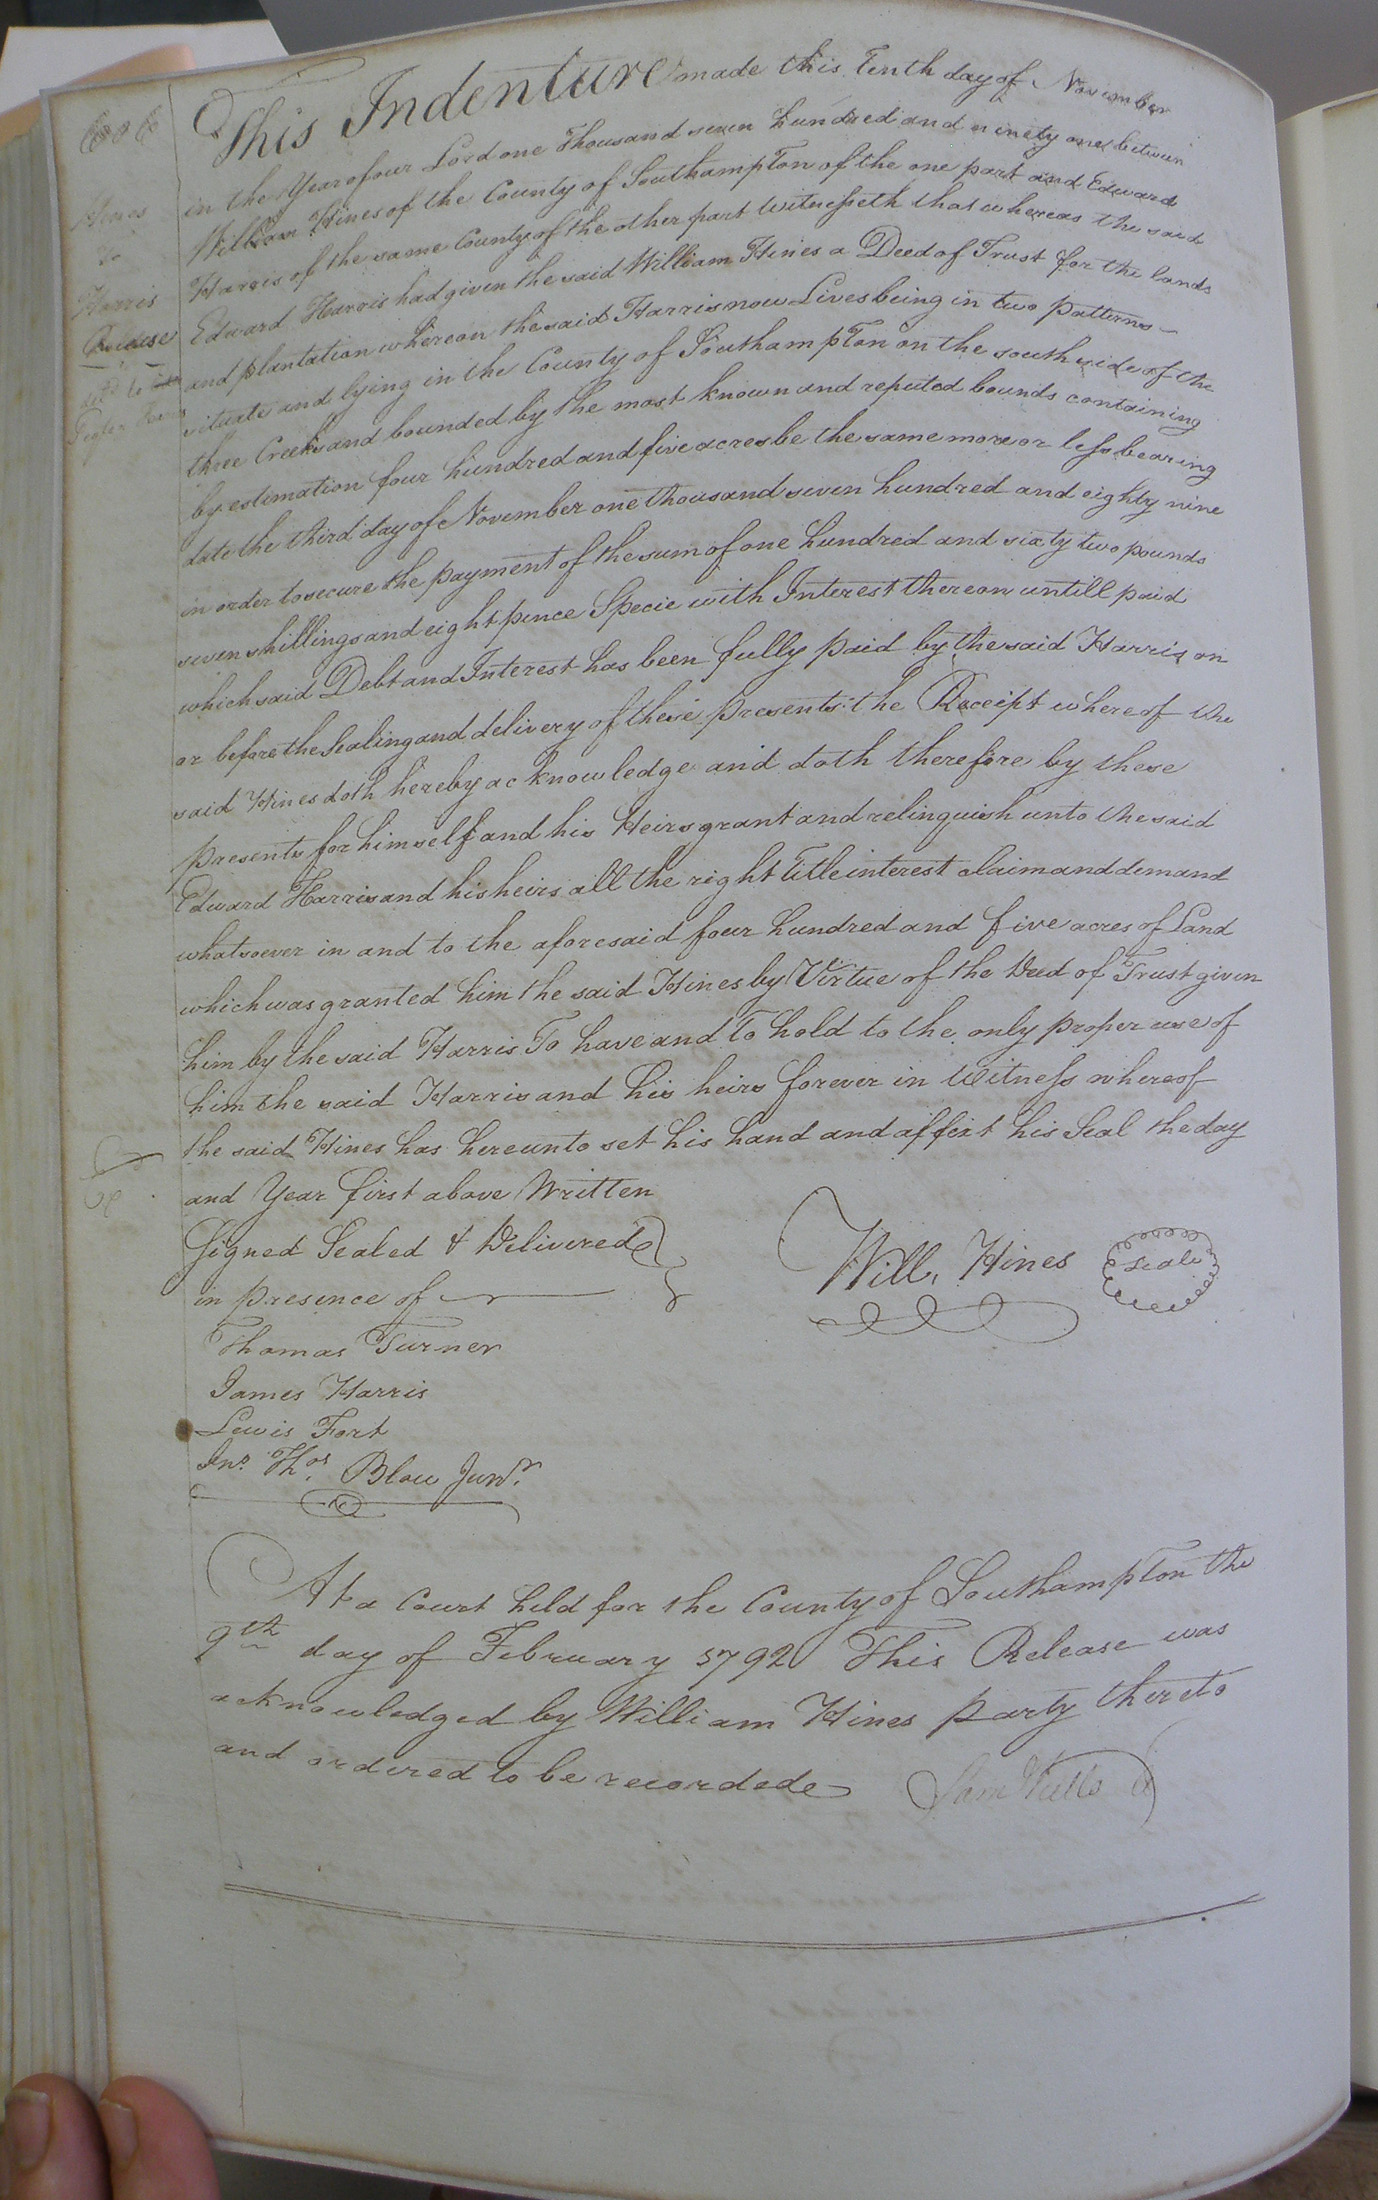 606
Hines
To
Harris
Release
This Indenture made this Tenth day of November
in the Year of our Lord one Thousand seven hundred and ninety one between
William Hines of the County of Southampton of the one part and Edward
Harris of the same County of the other part Witnesseth that whereas the said
Edward Harris had given the said William Hines a Deed of Trust for the lands
and plantation whereon the said Harris now Lives being in two patterns
situate and lying in the County of Southampton on the south side of the
three Creeks and bounded by the most known and reputed bounds containing
by estimation four hundred and five acres be the same more or less bearing
date the third day of November one thousand seven hundred and eighty nine
in order to secure the payment of the sum of one hundred and sixty two pounds
seven shillings and eight pence Specie with Interest thereon untill paid
which said Debt and Interest has been fully paid by the said Harris on
or before the Sealing and delivery of these presents the Receipt whereof the
said Hines doth hereby acknowledge and doth therefore by these
presents for himself and his Heirs grant and relinquish unto the said
Edward Harris and his heirs all the right Title interest claim and demand
whatsoever in and to the aforesaid four hundred and five acres of Land
which was granted him the said Hines by Virtue of the Deed of Trust given
him by the said Harris To have and To hold to the only proper use of
him the said Harris and his heirs forever in Witness whereof
the said Hines has hereunto set his hand and affixt his Seal the day
and Year first above Written
Signed Sealed & Delivered
in presence of
Will. Hines Seal
Thomas Turner
James Harris
Lewis Fort
Jno. Thos. Blow Junr.
At a Court held for the County of Southampton the
9th day of February 1792 This Release was
acknowledged by William Hines party thereto
and ordered to be recorded
Sam Kello